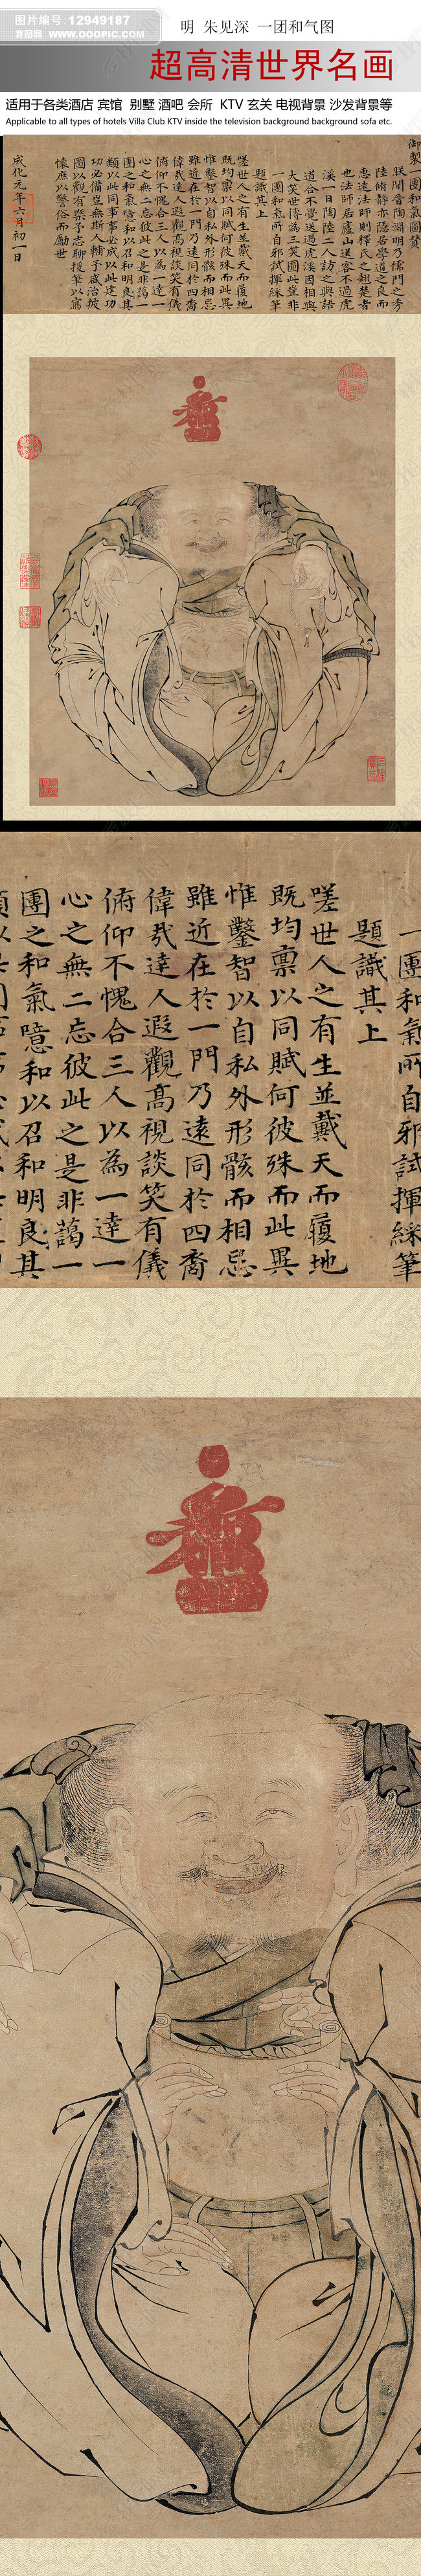 图片编号: 12949187
我图网 WWW.OOOPIC.COM
明 朱见深 一团和气图
超高清世界名画
适用于各类酒店 宾馆 别墅 酒吧 会所 KTV 玄关 电视背景 沙发背景等
Applicable to all types of hotels Villa Club KTV inside the television background background sofa etc.
御製一團和氣圖贊
朕聞晉陶淵明乃儒門之秀
陸脩靜亦隱居學道之良而
惠遠法師則釋氏之翹楚者
也法師居廬山送客不過虎
溪一日陶陸二人訪之與語
道合不覺送過虎溪因相與
大笑世傳為三笑圖此豈非
一團和氣所自邪試揮綵筆
題識其上
嗟世人之有生並戴天而履地
既均稟以同賦何彼殊而此異
惟鑿智以自私外形骸而相忌
雖近在於一門乃遠同於四裔
偉哉達人遐觀高視談笑有儀
俯仰不愧合三人以為一達一
心之無二忘彼此之是非藹一
團之和氣噫和以召和明良其
類以此同事事必成以此建功
功必備豈無斯人輔予盛治披
圖以觀有槩予志聊援筆以寫
懷庶以警俗而勵世
成化元年六月初一日
一團和氣所自邪試揮綵筆
題識其上
嗟世人之有生並戴天而履地
既均稟以同賦何彼殊而此異
惟鑿智以自私外形骸而相忌
雖近在於一門乃遠同於四裔
偉哉達人遐觀高視談笑有儀
俯仰不愧合三人以為一達一
心之無二忘彼此之是非藹一
團之和氣噫和以召和明良其